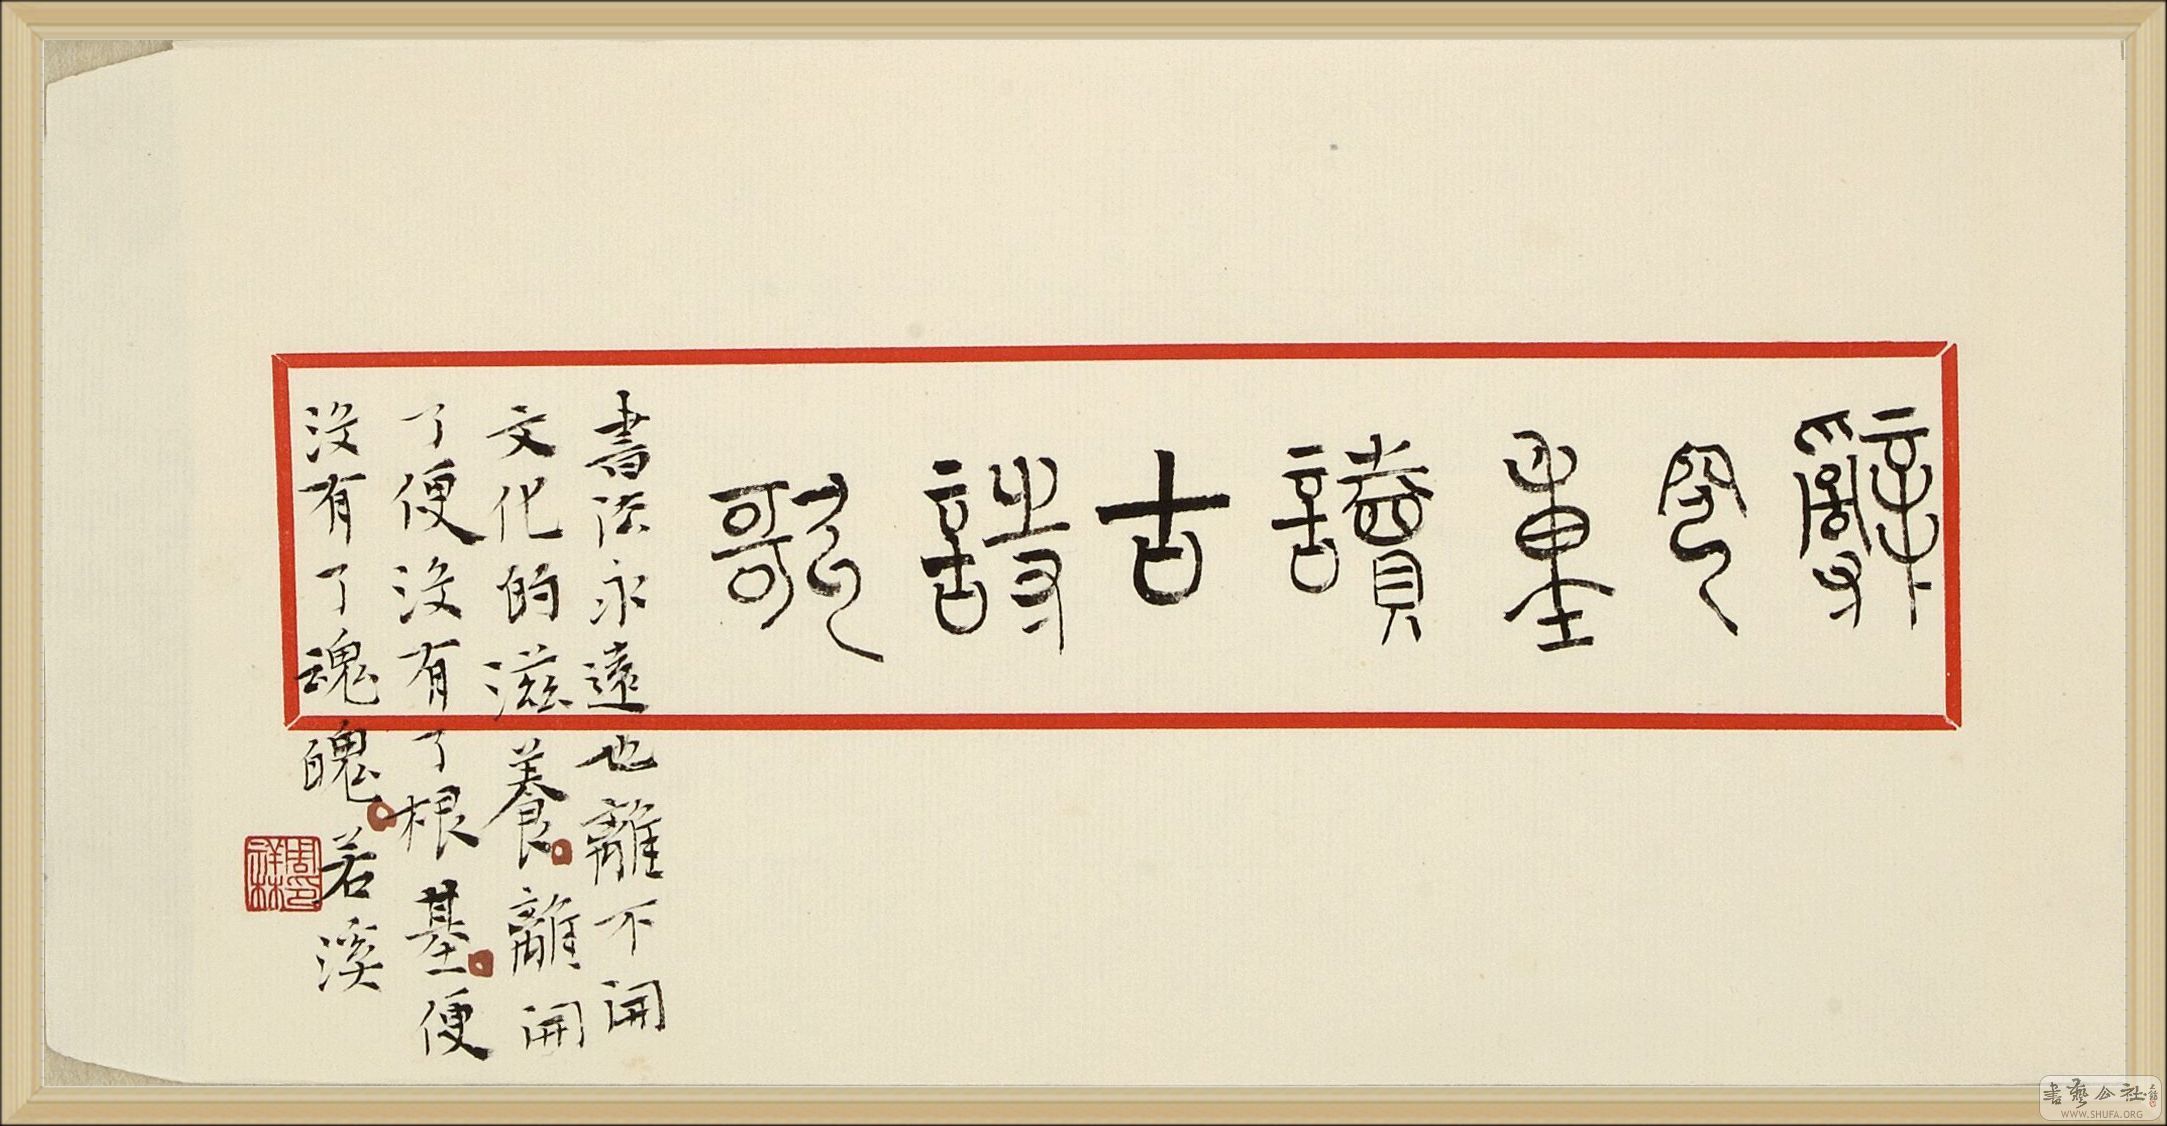 辭令重讀古詩歌
書法永遠也離不開
文化的滋養。離開
了便沒有了根基。便
沒有了魂魄。若溪
周印祥林
書藝公社
WWW.SHUFA.ORG